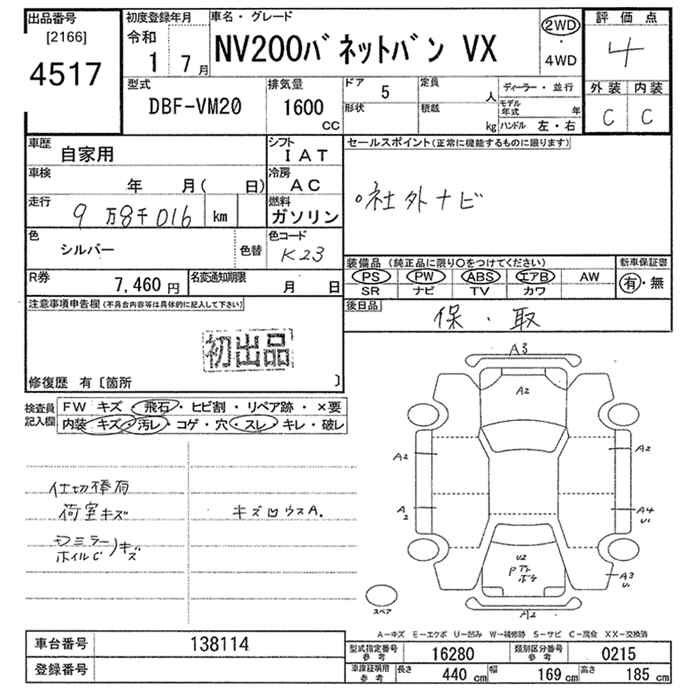 出品番号
[2166]
4517
初度登録年月
令和
1 7月
車名・グレード
NV200バネットバン VX
2WD
・
4WD
評価点
4
外装 内装
C C
型式
DBF-VM20
排気量
1600
CC
ドア 5
形状
定員 人
積載 kg
ディーラー・並行
モデル年式 年
ハンドル 左・右
車歴 自家用
シフト IAT
車検 年 月( 日)
冷房 AC
走行 9万8千016 km
燃料 ガソリン
色 シルバー
色替
色コード K23
R券 7,460円
名変通知期限 月 日
セールスポイント(正常に機能するものに限ります)
○社外ナビ
装備品(純正品に限り○をつけてください)
PS PW ABS エアB AW
SR ナビ TV カワ
新車保証書
有・無
後日品
保・取
注意事項申告欄(不具合内容等は具体的に記入して下さい)
初出品
修復歴 有〔箇所 〕
検査員記入欄
FW キズ・飛石・ヒビ割・リペア跡・×要
内装 キズ・汚レ・コゲ・穴・スレ・キレ・破レ
仕切棒有
荷室キズ
ミラー
ホイルC
キズ
キズ凹ウスA.
A3
A2
A2
A2
A2
A4
U1
U2
A3
U1
A2
スペア
A-キズ E-エクボ U-凹み W-補修跡 S-サビ C-腐食 XX-交換済
車台番号 138114
登録番号
型式指定番号 参考 16280
類別区分番号 参考 0215
車庫証明用 参考
長さ 440 cm
幅 169 cm
高さ 185 cm